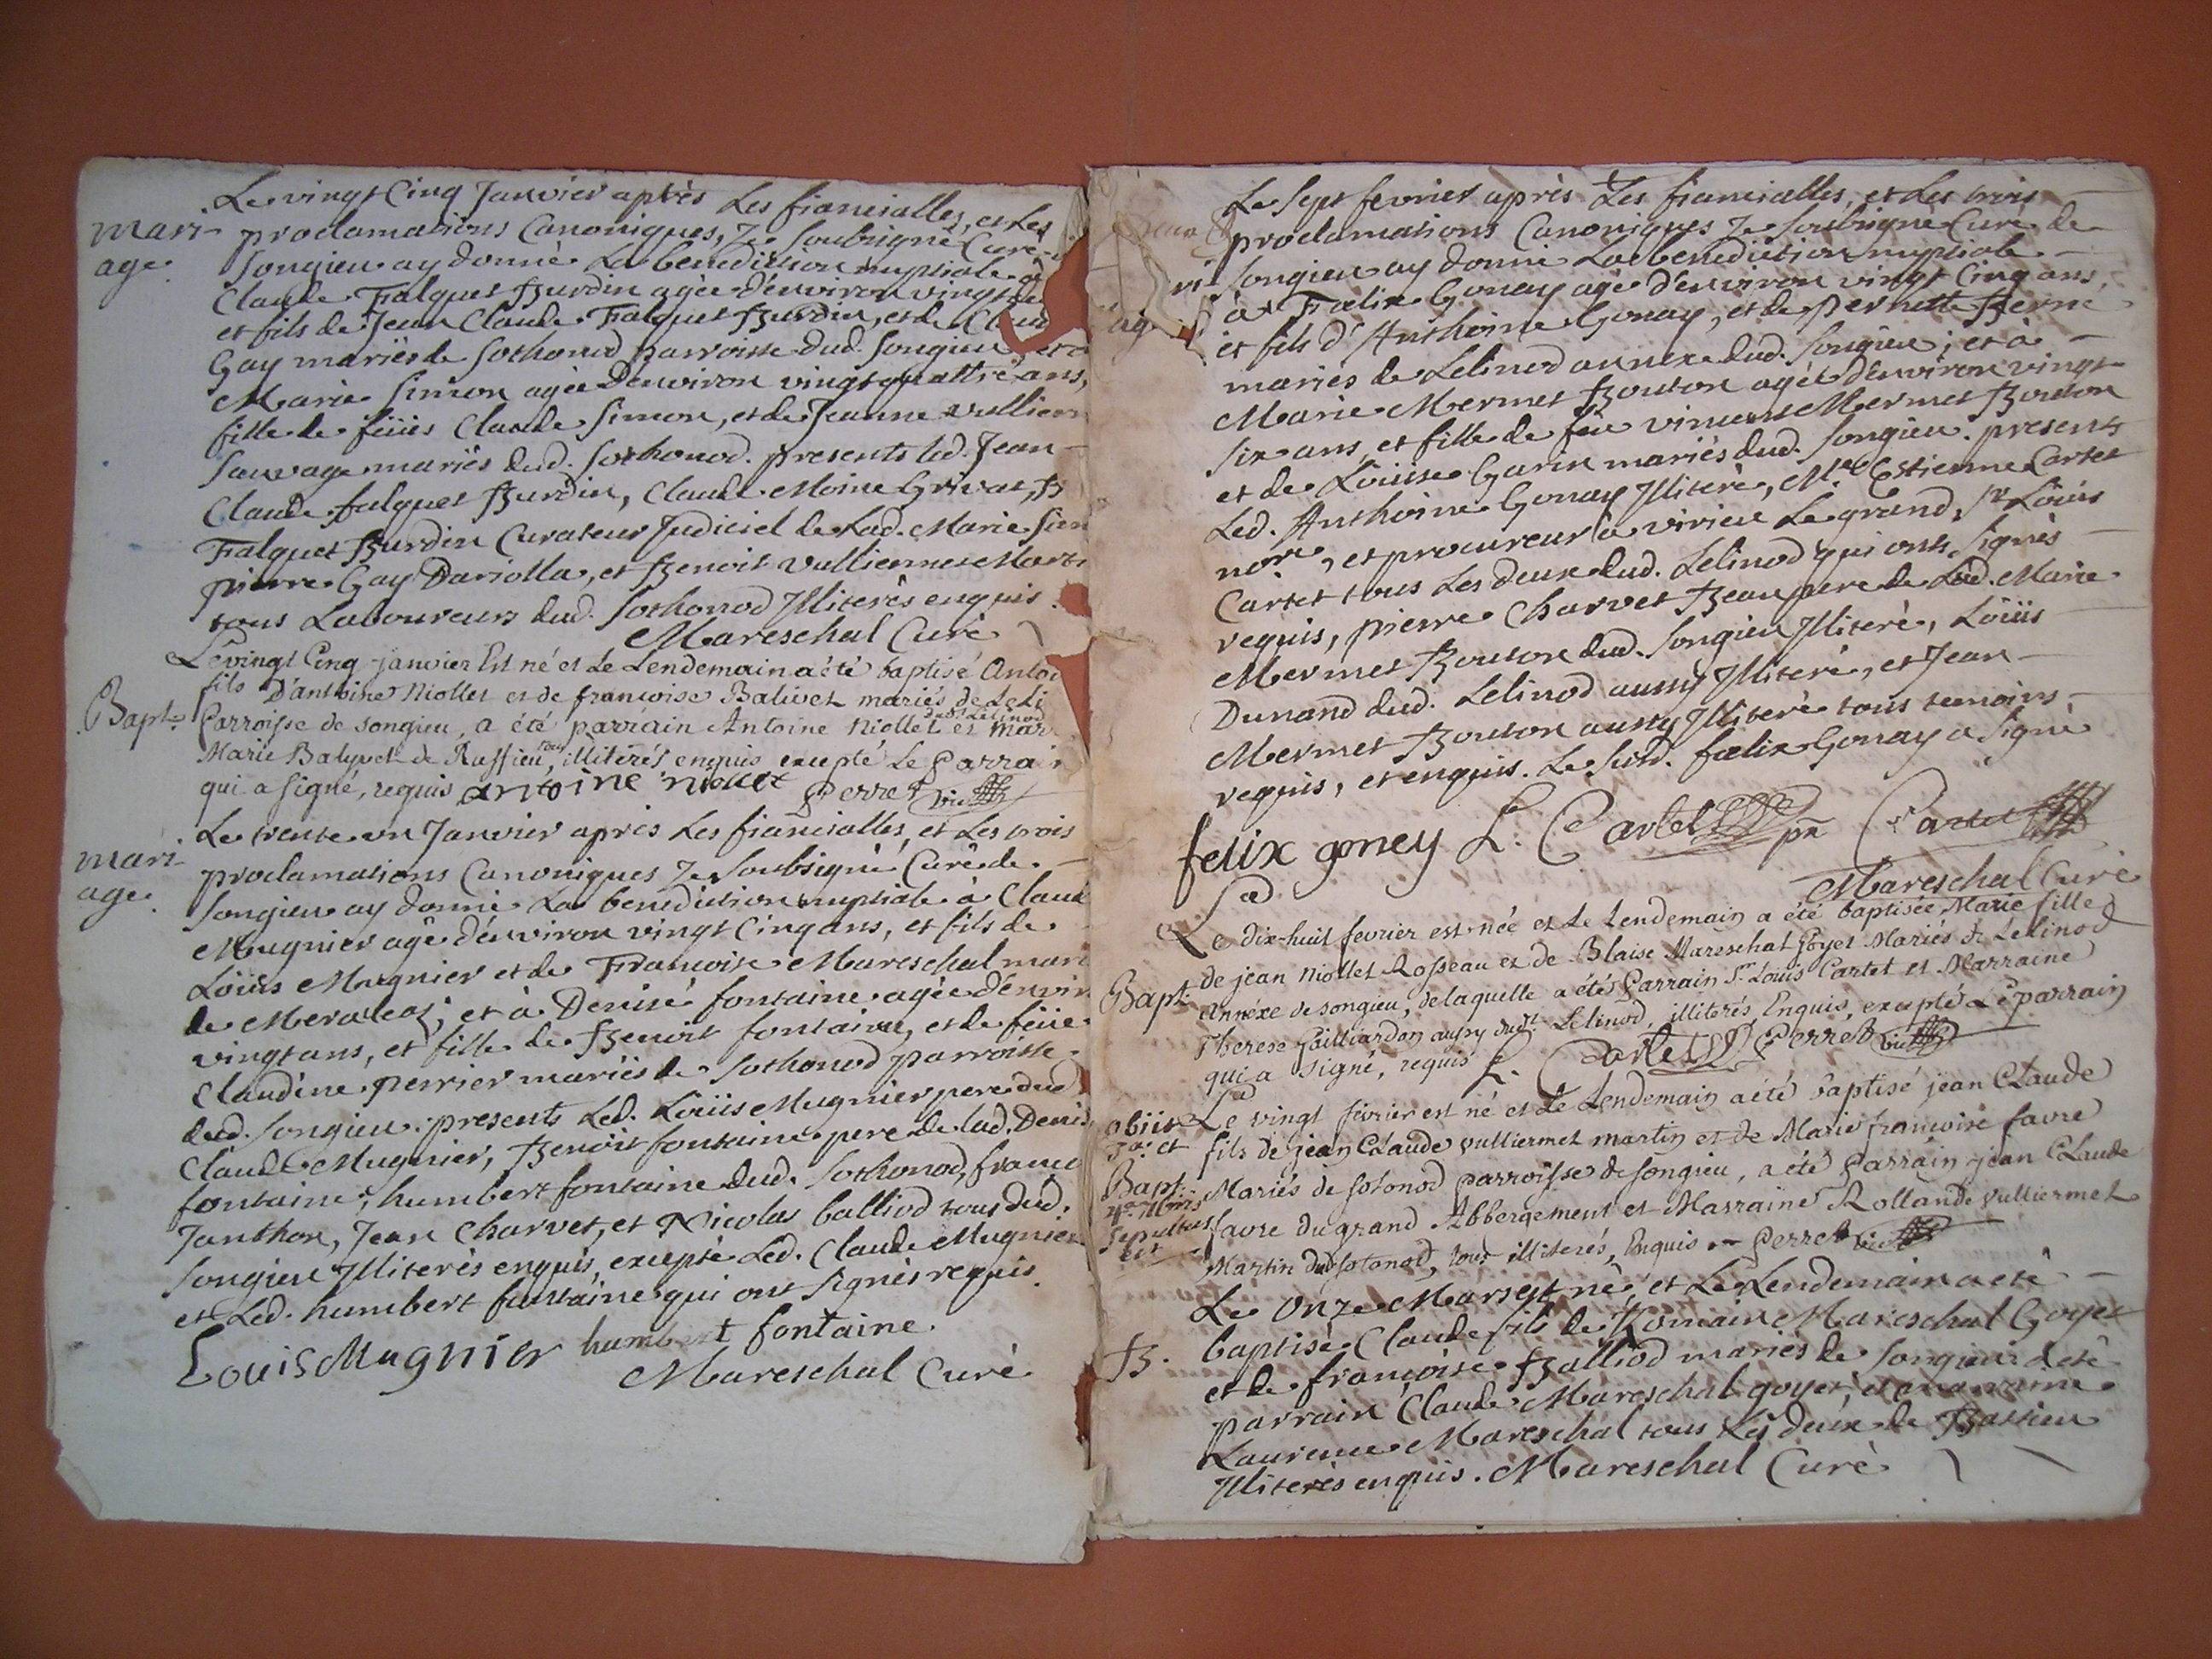 Le vingt Cinq Janvier après Les fiancialles, et Les
mari-
age.
proclamations Canoniques, Je Soubsigné Curé
Songieu ay donné La benediction nuptiale à
Claude Falquet Burdin agée d'environ vingt
et fils de Jean Claude Falquet Burdin, et de Clau
Gay mariès de Sothonod parroisse dud. Songieu, et
Marie Simon agèe d'environ vingt quattre ans,
fille de feües Claude Simon, et de Jeanne vullierm
Sauvage mariès dud. Sothonod. presents led. Jean-
Claude falquet Burdin, Claude Moine Grivat, B
Falquet Burdin Curateur Judiciel de Lad. Marie Sim
pierre Gay Dariolla, et Benoit vulliermet Mart
tous Laboureurs dud. Sothonod Illiterès enquis.
Mareschal Curé
Le vingt Cinq janvier Est né et Le Lendemain a été baptisé Antoi
fils D'antoine Niollet et de françoise Balivet mariés de Leli
Bapt.
Parroisse de songieu, a été parrain Antoine Niollet dud. Lelinod et Mar
Marie Balyvet de Ruffieu, tous illiterés enquis excepté Le Parrain
qui a signé, requis antoine niollet Perret vic
mari-
age.
Le trente un Janvier après Les fiancialles, et Les trois
proclamations Canoniques Je Soubsigné Curé de
Songieu ay donné La benediction nuptiale à Claude
Mugnier agé d'environ vingt Cinq ans, et fils de
Loüis Mugnier et de Françoise Mareschal mari
de et à Denise fontaine agée d'envir
vingt ans, et fille de Benoit fontaine, et de feüe
Claudine perrier mariès de Sothonod parroisse
dud. Songieu. presents Led. Loüis Mugnier pere dud
Claude Mugnier, Benoit fontaine pere de lad. Denise
fontaine, humbert fontaine dud. Sothonod, franç
Janthon, Jean Charvet, et Nicolas balliod tous dud.
Songieu Illiterès enquis, excepté Led. Claude Mugnier
et Led. humbert fontaine qui ont signès requis.
Louis Mugnier humbert fontaine.
Mareschal Curé
Le Sept fevrier après Les fiancialles, et Les trois
proclamations Canoniques Je Soubsigné Curé de
ri-
Songieu ay donné La benediction nuptiale
à Fœlix Gonay agé d'environ vingt Cinq ans,
ag
et fils d'Anthoine Gonay, et de pernette Berne
mariès de Lelinod annexe dud. Songieu; et à
Marie Mermet Bouton agée d'environ vingt
Six ans, et fille de feu vincent Mermet Bouton
et de Loüise Garin mariès dud. Songieu. presents
Led. Anthoine Gonay Illiteré, Me. Estienne Cartet
nore, et procureur à virieu Le grand, Sr. Loüis
Cartet tous Les deux dud. Lelinod qui onts signès
requis, pierre Charvet Beau pere de Lad. Marie
Mermet Bouton dud. Songieu Illiteré, Loüis
Dunand dud. Lelinod aussy Illiteré, et Jean
Mermet Bouton aussy Illiteré tous temoins
requis, et enquis. Le Susd. fœlix Gonay a Signé
felix goney L. Cartet pr Cartet
Mareschal Curé
Le dix-huit fevrier est née et Le Lendemain a été baptisée Marie fille
de jean Niollet Rosseau et de Blaise Mareschal Goyet Mariés de Lelinod
Bapt.
Annéxe de songieu, de laquelle a étés Parrain Sr. Louis Cartet et Marraine
Therese Gailliardon aussy dudt. Lelinod, illiterés, Enquis, excepté Le parrain
qui a signé, requis L. Cartet Perret vic
obiit
Le vingt février est né et Le Lendemain a été baptisé jean Claude
fils de jean Claude vulliermet martin et de Marie françoise favre
Bapt.
Mariés de sotonod parroisse de songieu, a été Parrain jean Claude
sepultus
est
favre du grand Abbergement et Marraine Rollande vulliermet
Martin dud sotonod, tous illiterés, Enquis Perret vic
Le Onze Mars est né, et Le Lendemain a eté
B.
baptisé Claude fils de Romain Mareschal Goyet
et de françoise Balliod mariès de Songieu a eté
parrain Claude Mareschal goyet, et marraine
Laurence Mareschal tous Les deux de Bassieu
Illiterès enquis. Mareschal Curé